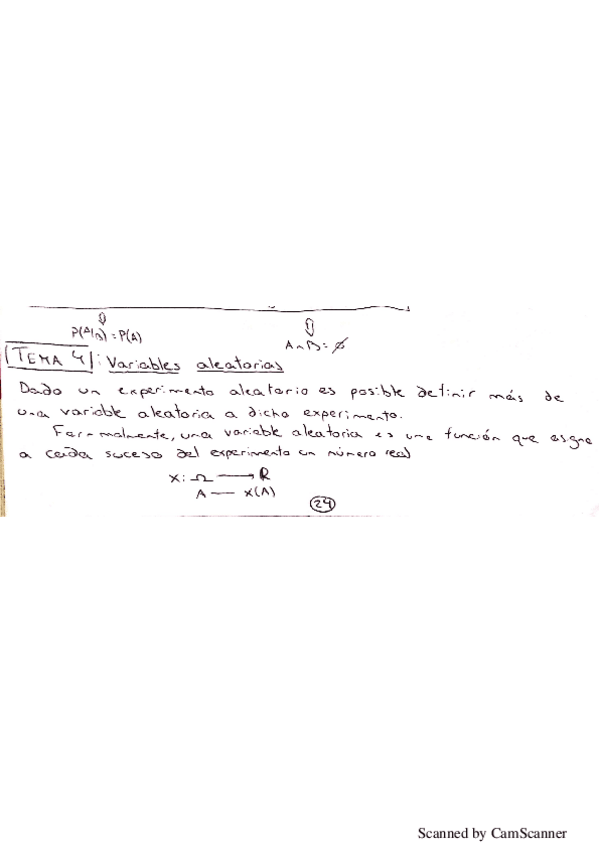 P(A/B) = P(A)
A∩B = ∅
TEMA 4: Variables aleatorias
Dado un experimento aleatorio es posible definir más de
una variable aleatoria a dicho experimento.
Formalmente, una variable aleatoria es una función que asigna
a cada suceso del experimento un número real
X: Ω → R
A — X(A)
24
Scanned by CamScanner